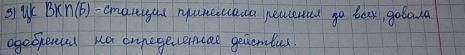 3) ЦК ВКП(б) - станция принемала решения за всех, довала
одобрения на определенные действия.